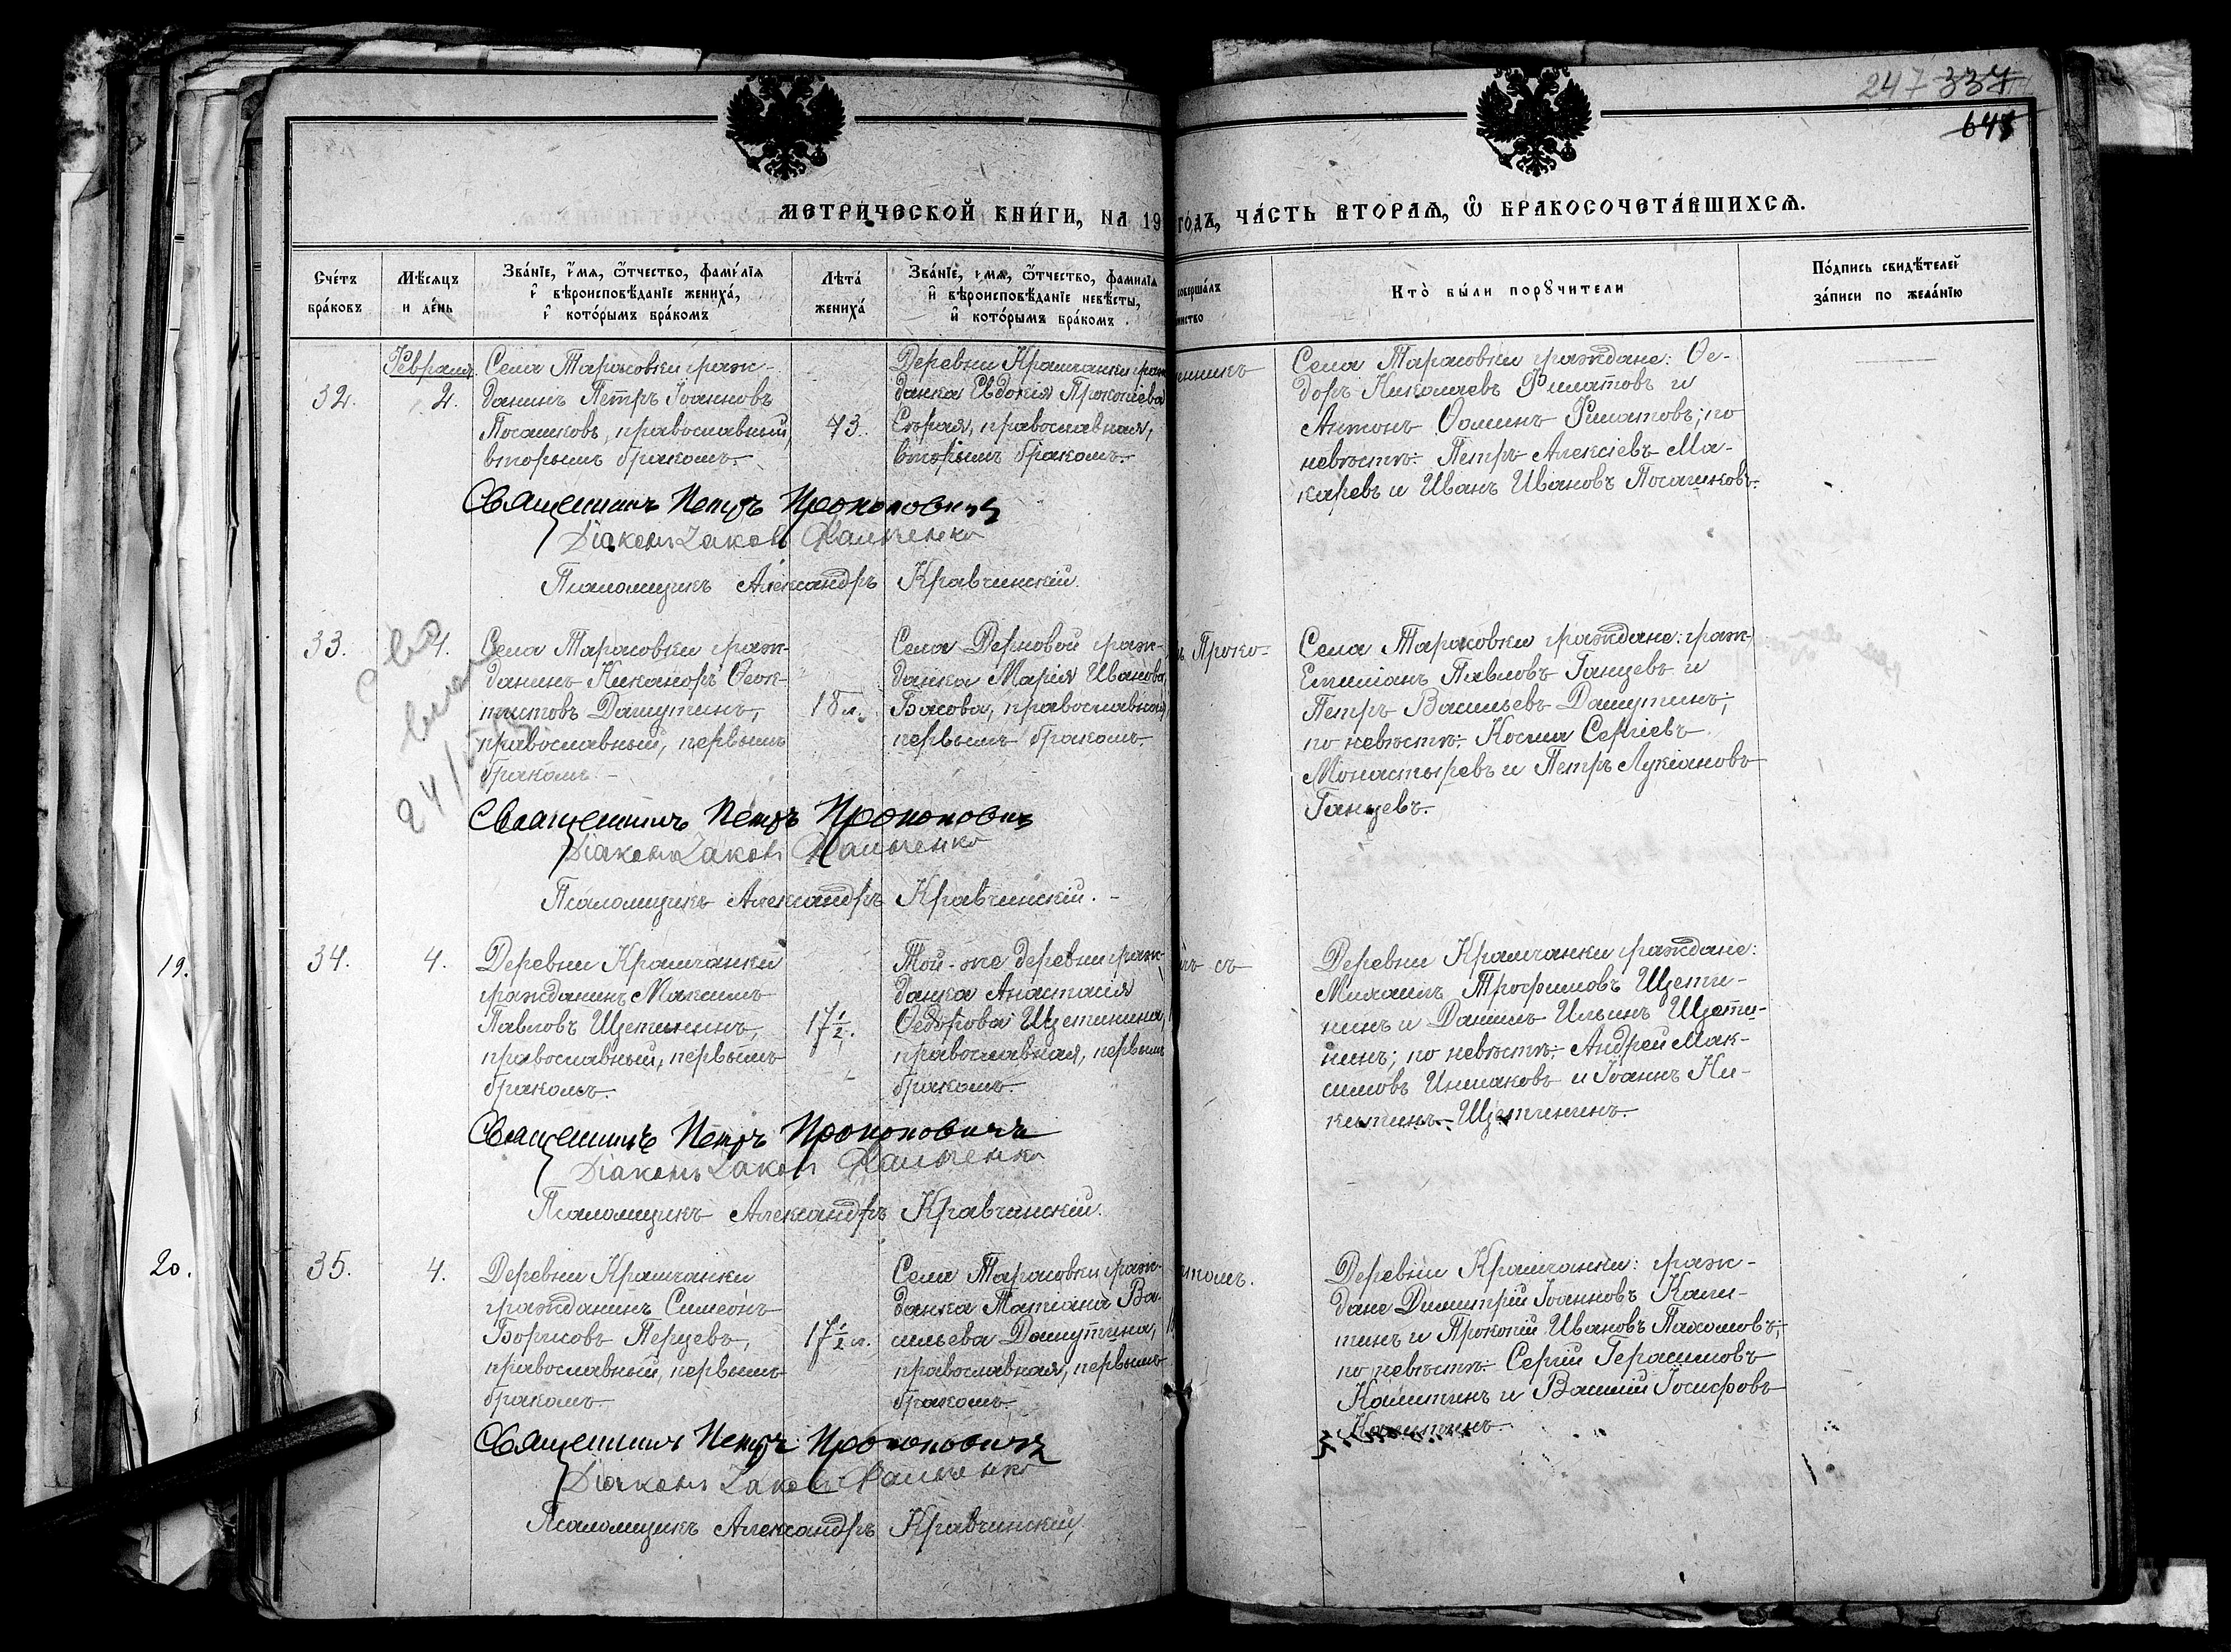 247 337
648
МЕТРИ́ЧЕСКОЙ КНИ́ГИ, НА 19
ГО́ДЪ, ЧА́СТЬ ВТОРАЯ, Ѽ БРАКОСОЧЕТА́ВШИХСЯ.
Сче́тъ
бра́ковъ
Мѣ́сяцъ
и де́нь
Зва́нїе, и́мя, ѻ҆́тчество, фами́лїя
и҆ вѣроисповѣ́данїе жениха́,
и҆ кото́рымъ бра́комъ
Лѣта̀
жениха́
Зва́нїе, и́мя, ѻ҆́тчество, фами́лїя
и҆ вѣроисповѣ́данїе невѣ́сты,
и҆ кото́рымъ бра́комъ
соверша́лъ
инство
Кто̀ бы́ли порꙋчи́тели
По́дпись свидѣ́телей
за́писи по жела́нїю
32.
Февраля
2.
Села Тарасовки граж-
данинъ Петръ Іоанновъ
Посашковъ, православный,
вторымъ бракомъ.
73.
Деревни Крамчанки граж
данка Евдокія Прокопіева
православная,
вторымъ бракомъ.
енникъ
Села Тарасовки граждане: Ѳе-
доръ Николаевъ Филатовъ и
Антонъ Ѳоминъ Филатовъ; по
невѣстѣ: Петръ Алексіевъ Ма-
каревъ и Иванъ Ивановъ Посашковъ.
Священникъ Петръ Прокоповичъ
Діаконъ Іаковъ
Псаломщикъ Александръ Кравчинскій.
33.
4.
24/
Села Тарасовки граж-
данинъ Никаноръ Ѳеок-
тистовъ Дашутинъ,
православный, первымъ
бракомъ.
18 л.
Села Дерновой граж-
данка Марія Иванова
Басова, православная,
первымъ бракомъ.
ъ Проко-
Села Тарасовки граждане: граж-
Емиліанъ Павловъ Ганцевъ и
Петръ Васильевъ Дашутинъ;
по невѣстѣ: Косма Сергіевъ
Монастыревъ и Петръ Лукіановъ
Ганцевъ.
Священникъ Петръ Прокоповичъ
Діаконъ Іаковъ
Псаломщикъ Александръ Кравчинскій.
19.
34.
4.
Деревни Крамчанки
гражданинъ Максимъ
Павловъ Щетининъ,
православный, первымъ
бракомъ.
17 1/2.
Той-же деревни граж-
данка Анастасія
Ѳедорова Щетинина,
православная, первымъ
бракомъ.
ъ съ
Деревни Крамчанки граждане:
Михаилъ Трофимовъ Щети-
нинъ и Даніилъ Ильинъ Щети-
нинъ; по невѣстѣ: Андрей Мак-
симовъ Иншаковъ и Іоаннъ Ни-
китинъ Щетининъ.
Священникъ Петръ Прокоповичъ
Діаконъ Іаковъ
Псаломщикъ Александръ Кравчинскій.
20.
35.
4.
Деревни Крамчанки
гражданинъ Симеонъ
Борисовъ Перцевъ,
православный, первымъ
бракомъ.
17 1/2 л.
Села Тарасовки граж-
данка Татіана Ва-
сильева Дашутина,
православная, первымъ
бракомъ.
Деревни Крамчанки: граж-
дане Димитрій Іоанновъ Кали-
тинъ и Прокопій Ивановъ Пахомовъ;
по невѣстѣ: Сергій Герасимовъ
Калитинъ и Василій Іосифовъ
Калитинъ.
Священникъ Петръ Прокоповичъ
Діаконъ Іаковъ
Псаломщикъ Александръ Кравчинскій.